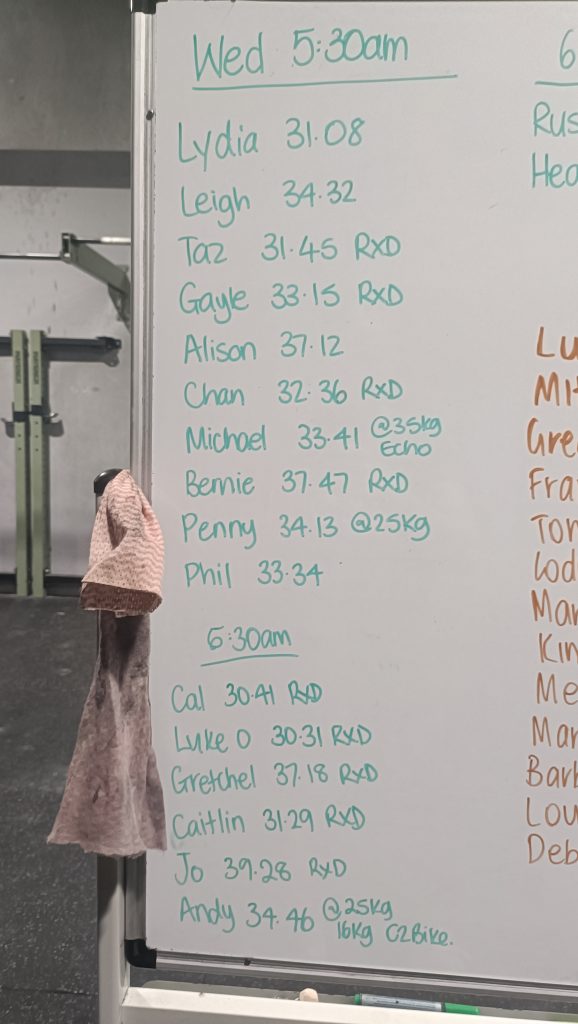 Wed 5:30am
Lydia 31.08
Leigh 34.32
Taz 31.45 RxD
Gayle 33.15 RxD
Alison 37.12
Chan 32.36 RxD
Michael 33.41 @35kg Echo
Bernie 37.47 RxD
Penny 34.13 @25kg
Phil 33.34
6:30am
Cal 30.41 RxD
Luke O 30.31 RxD
Gretchel 37.18 RxD
Caitlin 31.29 RxD
Jo 39.28 RxD
Andy 34.46 @25kg
16kg C2Bike.
6
Rus
Hea
Lu
Mi
Gre
Fra
Tor
Lod
Mar
Kin
Me
Mar
Barb
Lou
Deb